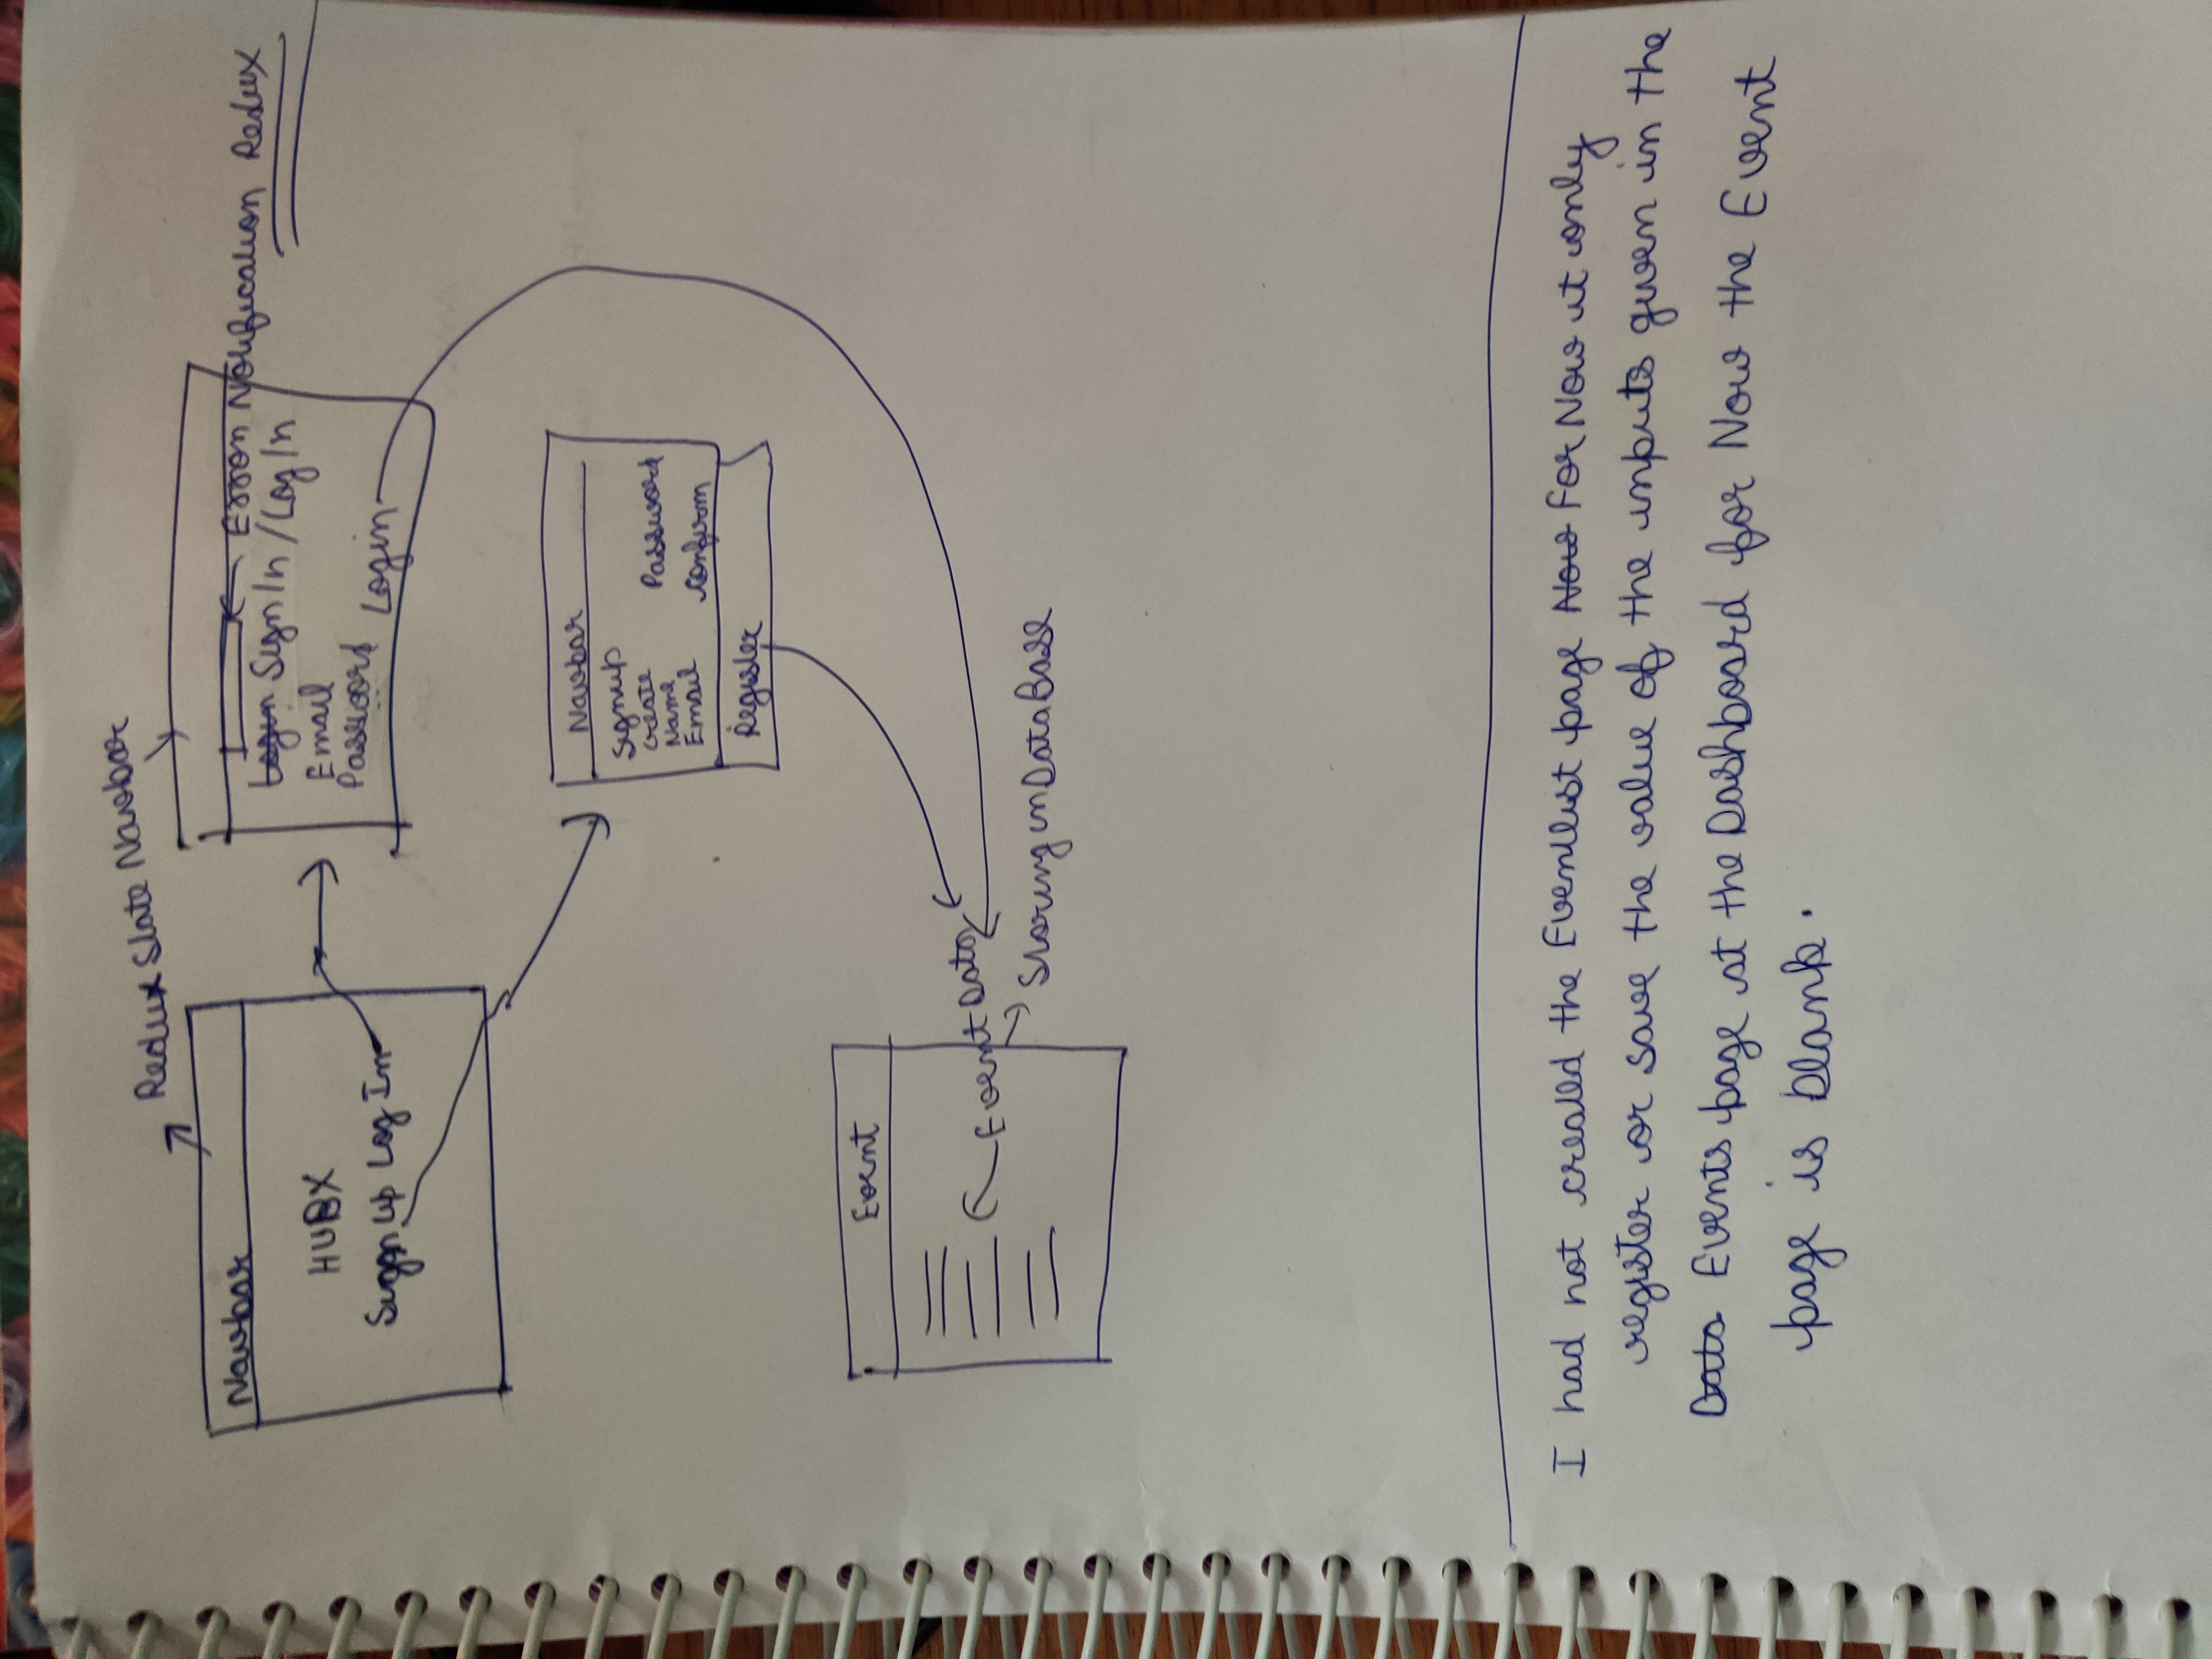 Redux State Navbar
Navbar
HUBX
Sign Up Log In
Error Notification Redux
Login Sign In / Log In
Email
Password
Login
Navbar
Signup
Create
Name
Email
Password
Confirm
Register
Event
Event Data
Storing in DataBase
I had not created the Eventlist page Now For Now it only
register or save the value of the inputs given in the
Data Events page at the Dashboard for Now the Event
page is blank.